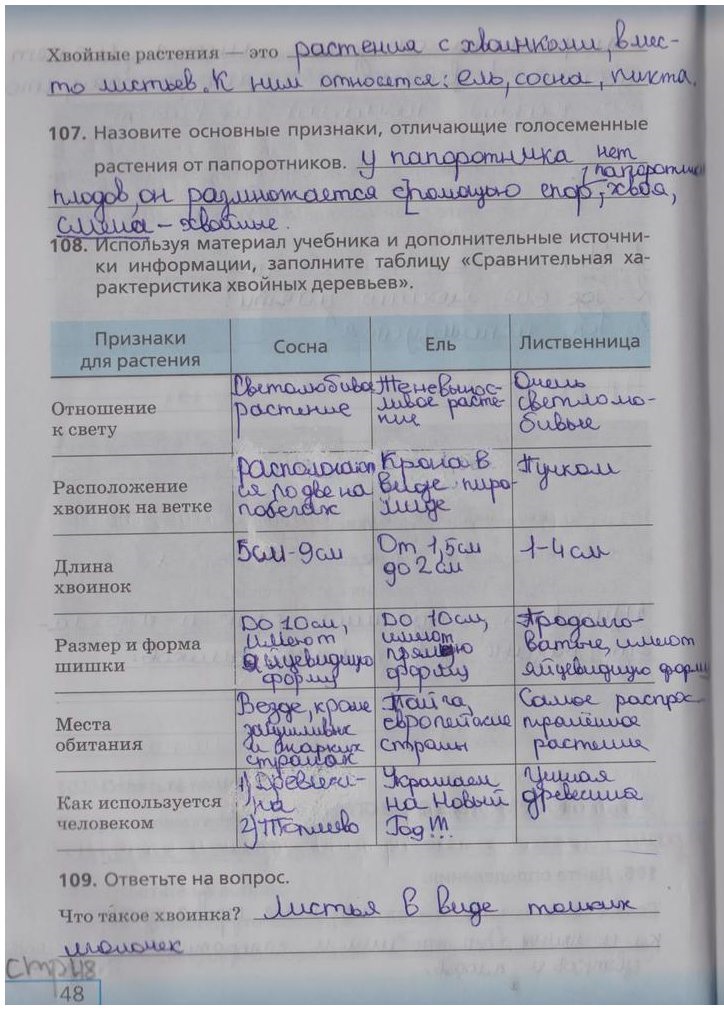 Хвойные растения — это растения с хвоинками, вмес-
то листьев. К ним относятся: ель, сосна, пихта.
107. Назовите основные признаки, отличающие голосеменные
растения от папоротников. У папоротника нет
плодов, он размножается с помощью спор, папоротник
, хвоя,
смена – хвойные.
108. Используя материал учебника и дополнительные источни-
ки информации, заполните таблицу «Сравнительная ха-
рактеристика хвойных деревьев».
Признаки для растения Сосна Ель Лиственница
Отношение к свету Светолюбивое растение Теневынос-ливое расте-ние Очень светлолю-бивые
Расположение хвоинок на ветке располагают ся по две на побегах Крона в виде пиро-миде Пучком
Длина хвоинок 5см-9см От 1,5см до 2 см 1-4 см
Размер и форма шишки До 10 см, имеют яйцевидную форму До 10 см, имеют прямую форму Продолго-ватые, имеют яйцевидную форму
Места обитания Везде, кроме засушливых и жарких странах Тайга, европейские страны Самое распрос-транённое растение
Как используется человеком 1) Древеси-на 2) Топливо Украшаем на Новый Год!!! Ценная древесина
109. Ответьте на вопрос.
Что такое хвоинка? Листья в виде тонких
иголочек
стр48
48